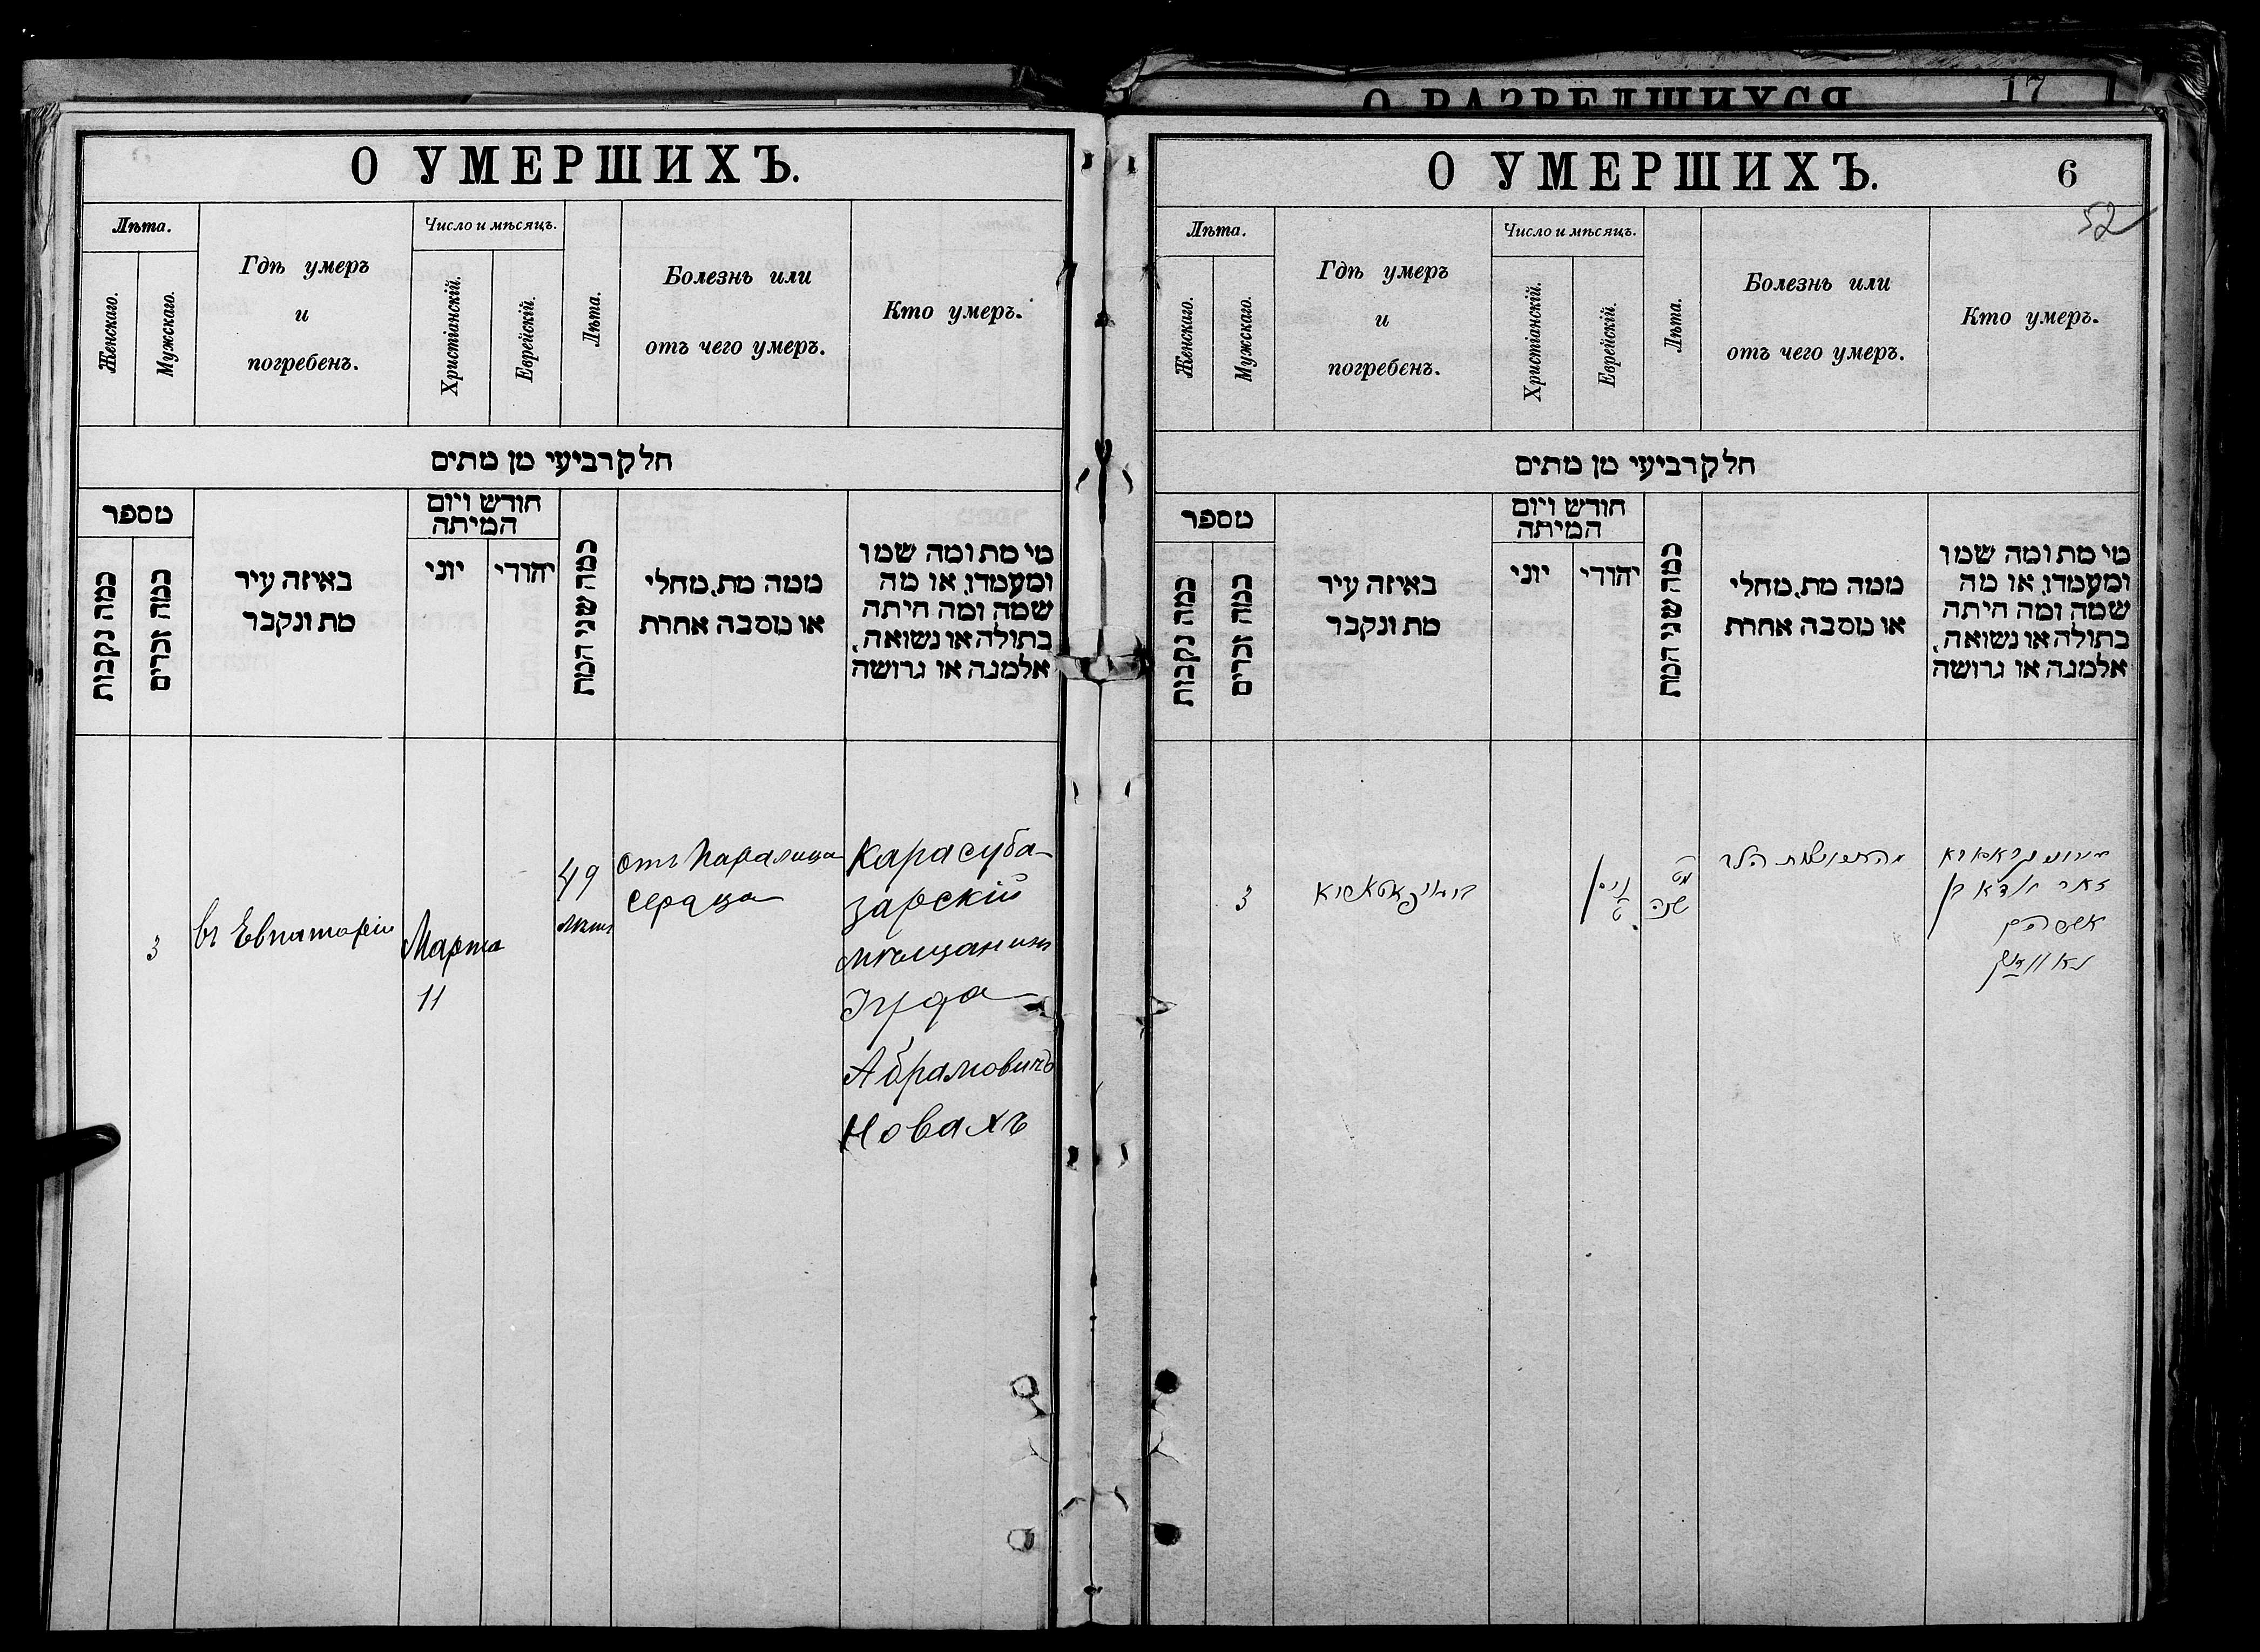 О РАЗВЕДШИХСЯ
17
О УМЕРШИХЪ.
Лѣта.
Женскаго.
Мужскаго.
Гдѣ умеръ
и
погребенъ.
Число и мѣсяцъ.
Христіанскій.
Еврейскій.
Лѣта.
Болезнь или
отъ чего умеръ.
Кто умеръ.
חלק רביעי מן מתים
מספר
כמה נקבות
כמה זכרים
באיזה עיר
מת ונקבר
חודש ויום
המיתה
יוני
יהודי
כמה שני המת
ממה מת, מחלי
או מסבה אחרת
מי מת ומה שמו
ומעמדו, או מה
שמה ומה היתה
בתולה או נשואה,
אלמנה או גרושה
3
въ Евпаторіи
Марта
11
49
лѣтъ
отъ Паралича
сердца
Карасуба-
зарскій
мѣщанинъ
Іуда
Абрамовичъ
Новахъ
О УМЕРШИХЪ.
6
52
Лѣта.
Женскаго.
Мужскаго.
Гдѣ умеръ
и
погребенъ.
Число и мѣсяцъ.
Христіанскій.
Еврейскій.
Лѣта.
Болезнь или
отъ чего умеръ.
Кто умеръ.
חלק רביעי מן מתים
מספר
כמה נקבות
כמה זכרים
באיזה עיר
מת ונקבר
חודש ויום
המיתה
יוני
יהודי
כמה שני המת
ממה מת, מחלי
או מסבה אחרת
מי מת ומה שמו
ומעמדו, או מה
שמה ומה היתה
בתולה או נשואה,
אלמנה או גרושה
3
ניסן
מט
שנה
הלב